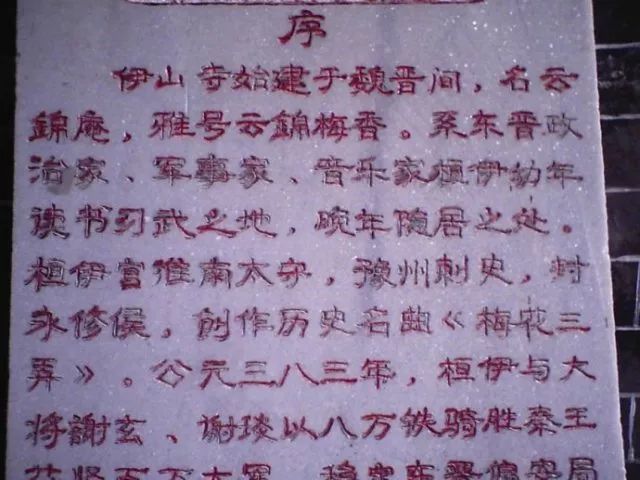 序
伊山寺始建于魏晋间，名云
錦庵，雅号云錦梅香。系东晋政
治家、军事家、音乐家桓伊幼年
读书习武之地，晚年隐居之处。
桓伊官淮南太守，豫州刺史，封
永修侯，创作历史名曲《梅花三
弄》。公元三八三年，桓伊与大
将謝玄、謝琰以八万铁骑胜秦王
苻坚百万大军，稳定东晋偏安局